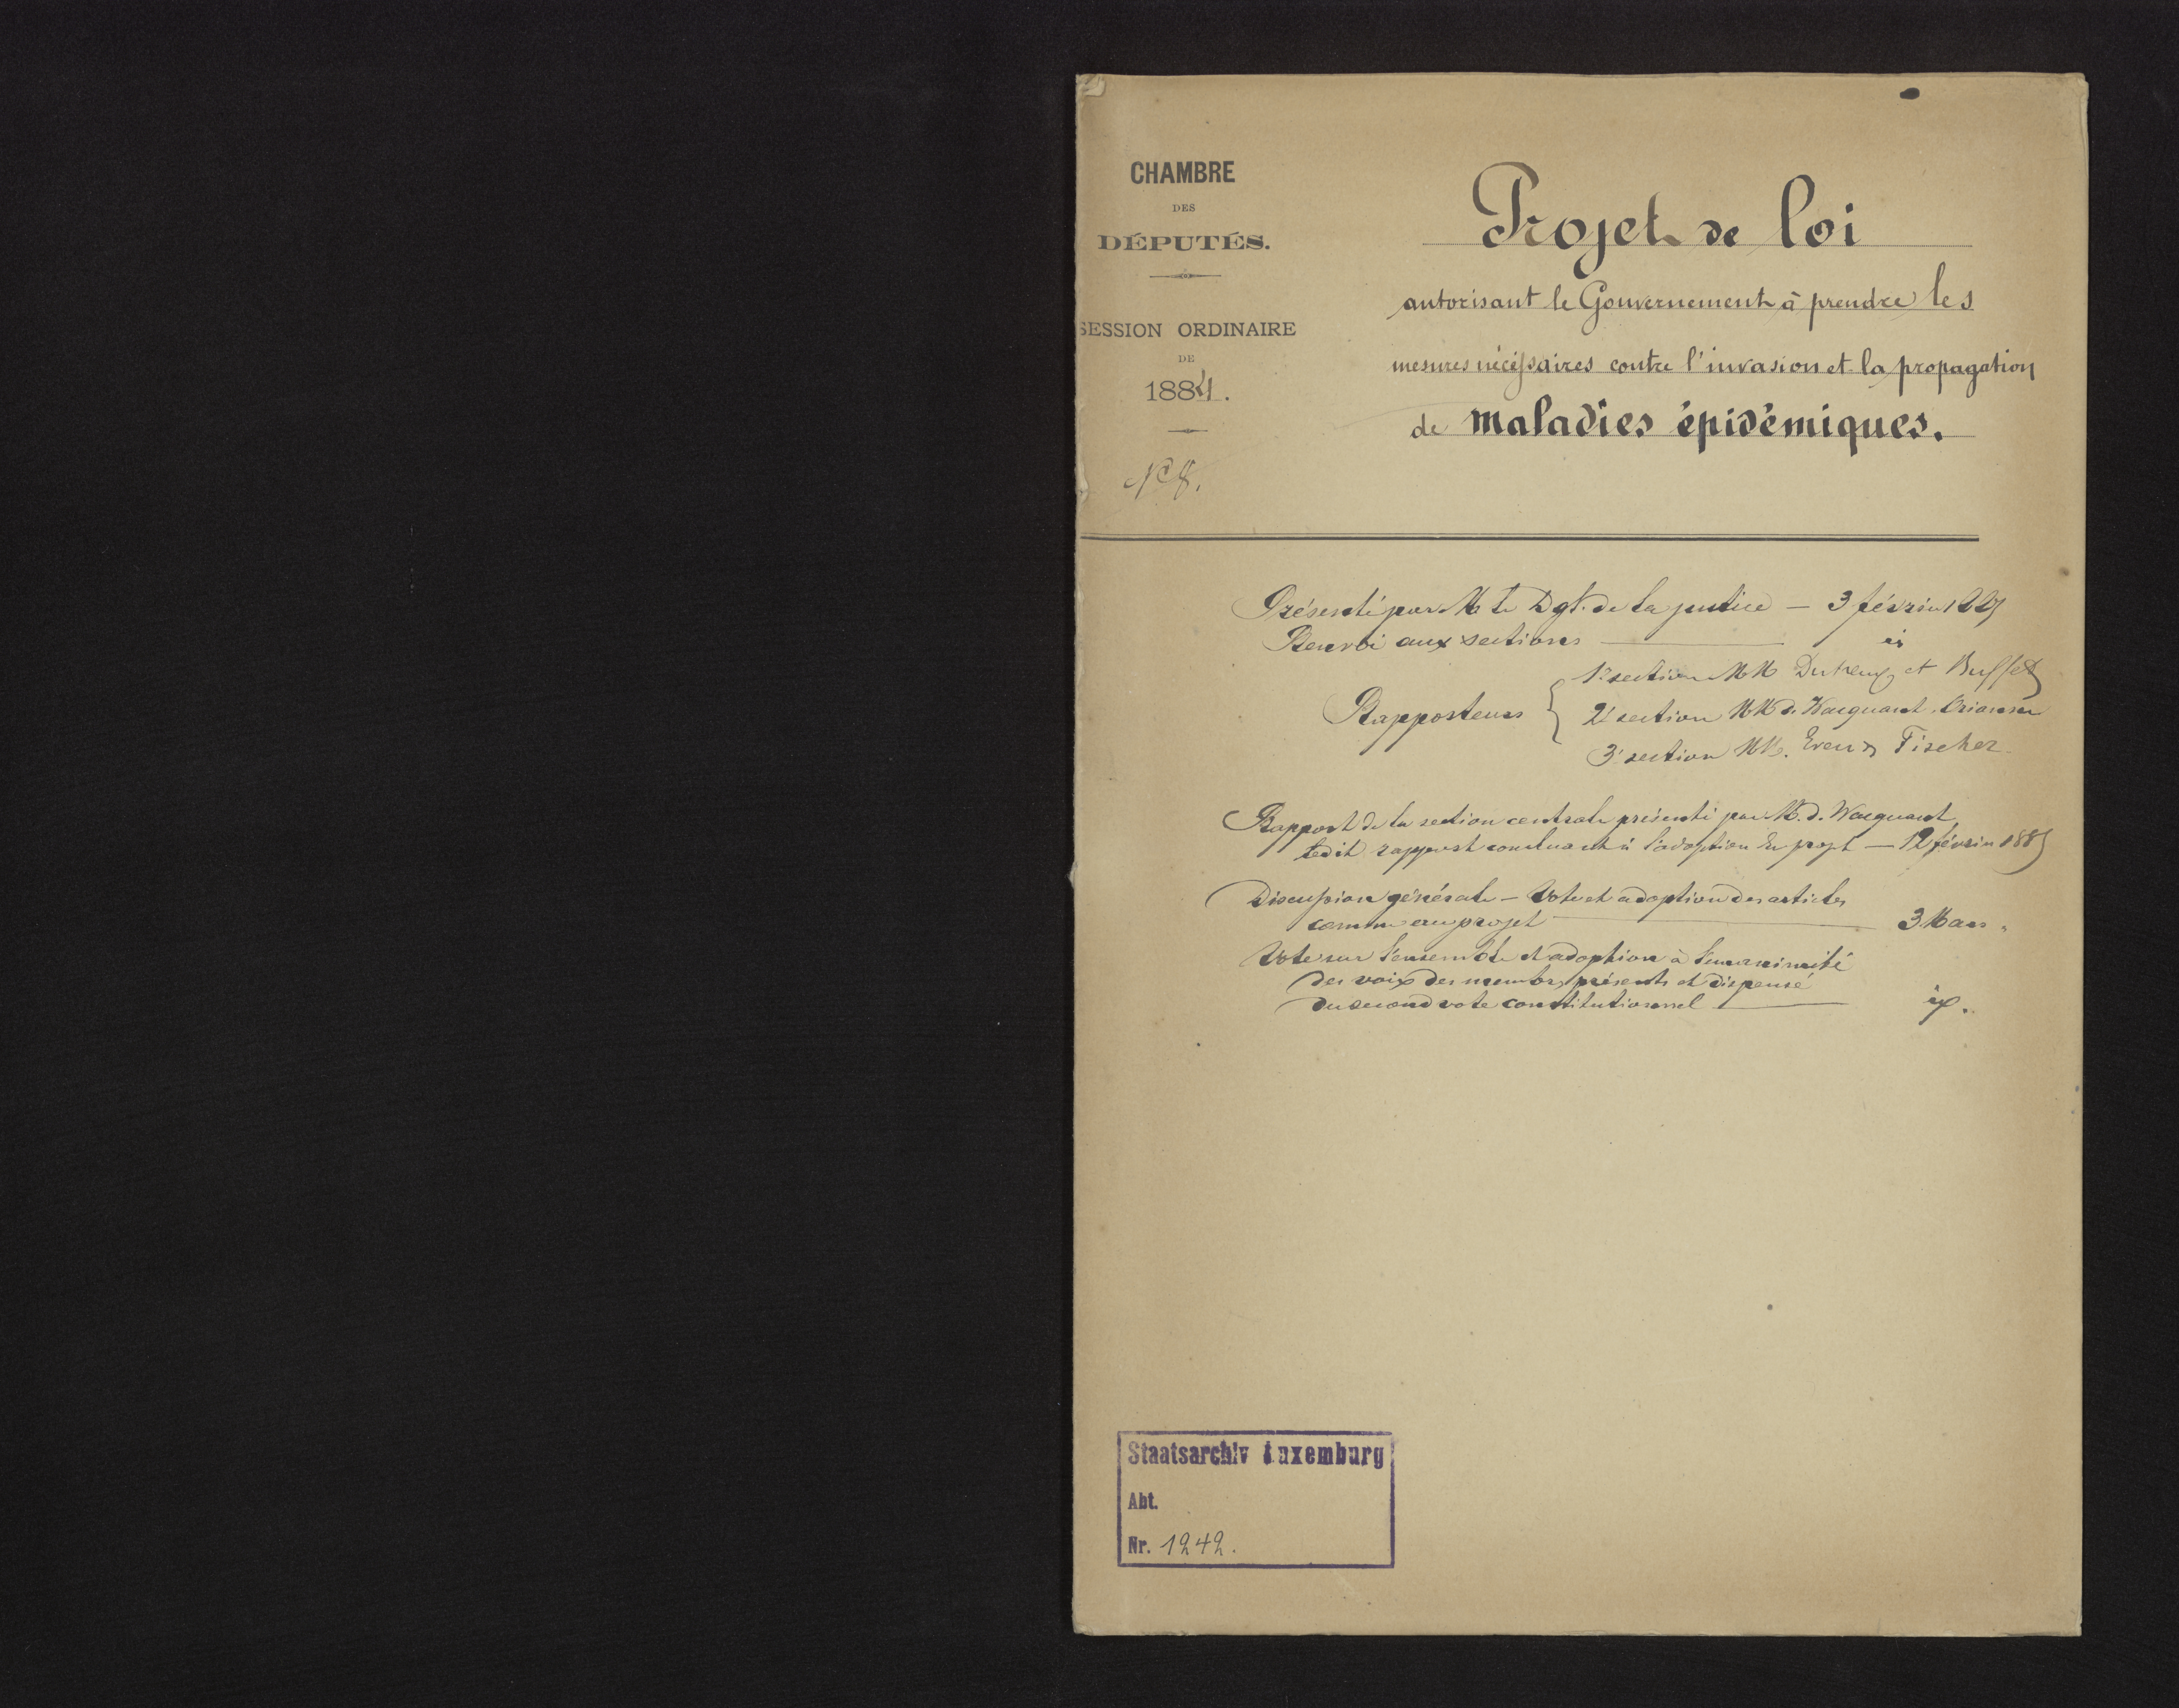 CHAMBRE
DES
DÉPUTÉS.
SESSION ORDINAIRE
DE
1884.
N° 8.
Projet de loi
autorisant le Gouvernement à prendre les
mesures nécessaires contre l'invasion et la propagation
de maladies épidémiques.
Présenté par M le D gl. de la justice — 3 février 1885
Renvoi aux sections — id
Rapporteurs
1e section MM Dutreux et Buffet
2e section MM d. Wacquant
3e section MM. Even & Fischer
Rapport de la section centrale présenté par M. d. Wacquant,
ledit rapport concluant à l'adoption du projet — 12 février 1885
Discussion générale — Vote et adoption des articles
comme au projet — 3 Mars "
Vote sur l'ensemble et adoption à l'unanimité
des voix des membres présents et dispense
du second vote constitutionnel —
Staatsarchiv Luxemburg
Abt.
Nr. 1242.